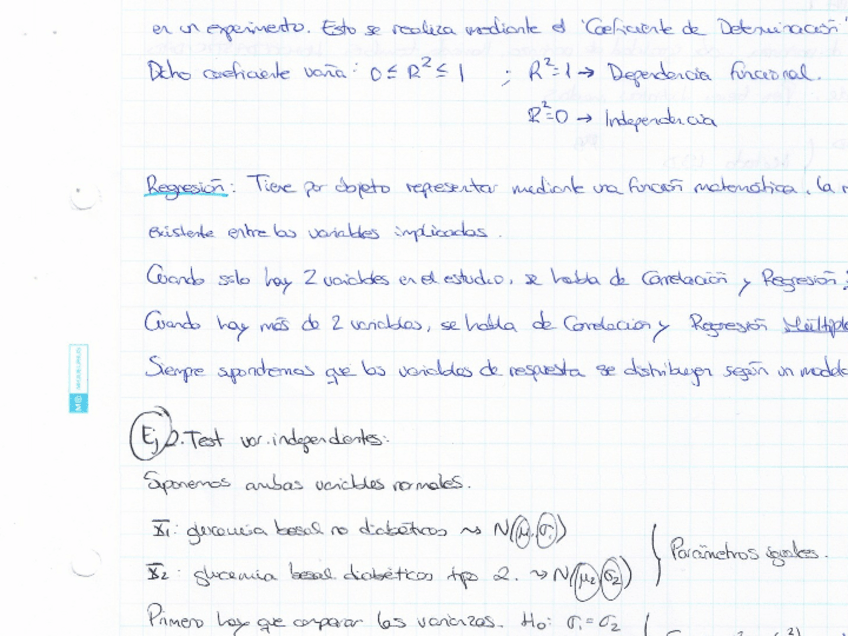 en un experimento. Esto se realiza mediante el "Coeficiente de Determinación"
Dicho coeficiente varía: 0 ≤ R² ≤ 1 ; R²=1 → Dependencia funcional.
R²=0 → Independencia
Regresión: Tiene por objeto representar mediante una función matemática, la
existente entre las variables implicadas.
Cuando solo hay 2 variables en el estudio, se habla de Correlación y Regresión
Cuando hay más de 2 variables, se habla de Correlación y Regresión Múltiple
Siempre supondremos que las variables de respuesta se distribuyen según un modelo
Ej 2. Test var. independientes:
Suponemos ambas variables normales.
X̄1: glucemia basal no diabéticos ~> N(μ1, σ1)
X̄2: glucemia basal diabéticos tipo 2. ~> N(μ2, σ2)
Parámetros iguales.
Primero hay que comparar las varianzas. H0: σ1 = σ2